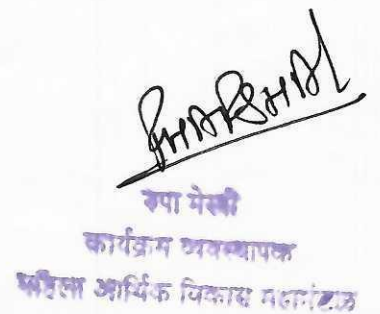 रुपा मेस्त्री
कार्यक्रम व्यवस्थापक
महिला आर्थिक विकास महामंडळ